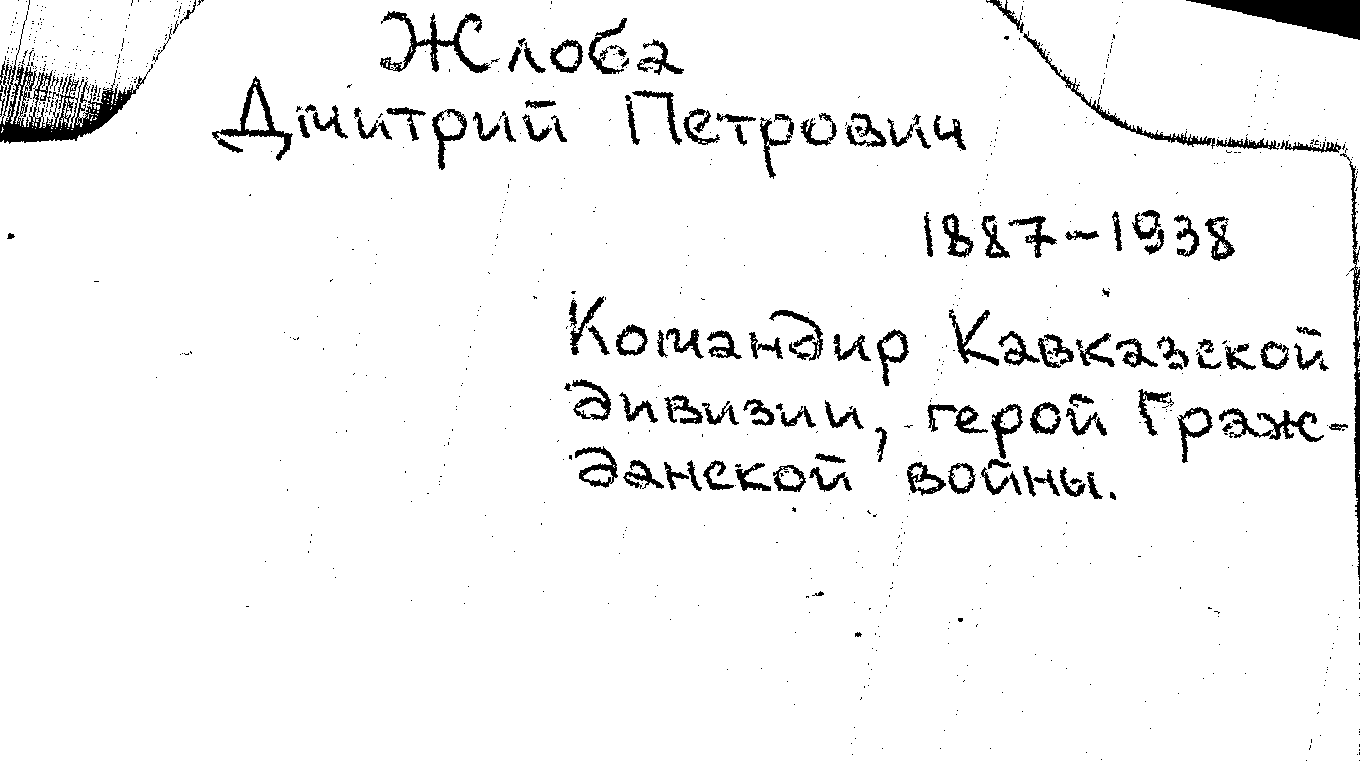 Жлоба
Дмитрий Петрович
1887-1938
Командир Кавказской
дивизии, герой Граж-
данской войны.